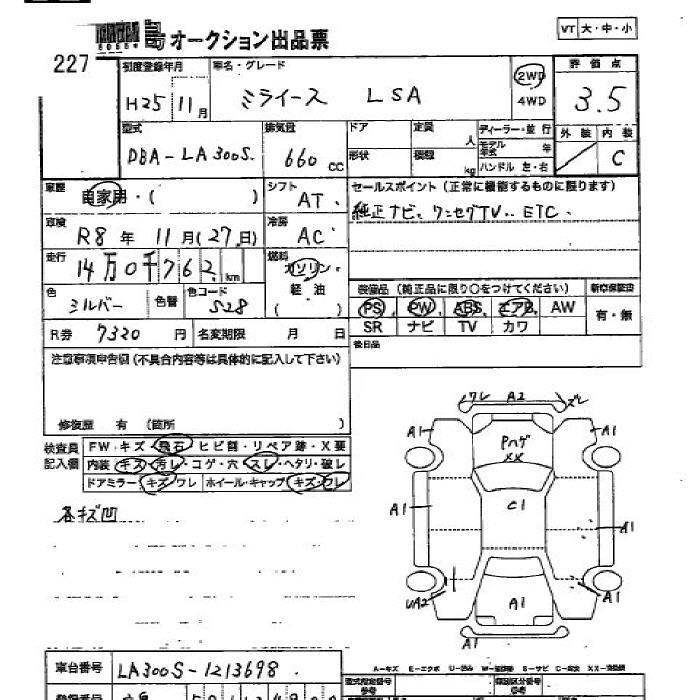 オークション出品票
VT 大・中・小
227
初度登録年月 車名・グレード 評価点
H25 11月 ミライース LSA 2WD 4WD 3.5
型式 排気量 ドア 定員 人 ディーラー・並行 外装 内装
DBA-LA300S. 660cc 形状 積載 kg モデル年式 年 ハンドル 左・右 C
車歴 自家用・( ) シフト AT セールスポイント (正常に機能するものに限ります)
純正ナビ、ワンセグTV.. ETC
車検 R8年 11月(27日) 冷房 AC
走行 14万0千762km 燃料 ガソリン・軽油 ( )
装備品 (純正品に限り○をつけてください) 新車保証書
PS PW ABS エアB AW 有・無
SR ナビ TV カワ
色 シルバー 色替 色コード S28
後日品
R券 7320円 名変期限 月 日
注意事項申告欄(不具合内容等は具体的に記入して下さい)
修復歴 有 (箇所 )
検査員記入欄
FW・キズ・飛石・ヒビ割・リペア跡・X要
内装 キズ・汚レ・コゲ・穴・スレ・ヘタリ・破レ
ドアミラー キズ・ワレ ホイール・キャップ キズ・ワレ
各キズ凹
ワレ A2 ズレ
A1 A1
Pハゲ
XX
A1 C1 A1
UA2 A1
A1
車台番号 LA300S-1213698
A-キズ E-エクボ
型式指定番号 類別区分番号
参考 参考
登録番号